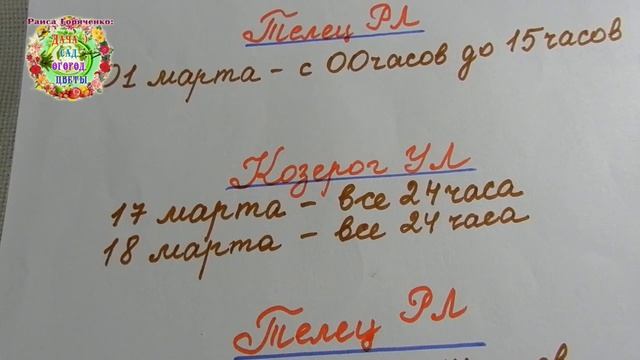 Раиса Горяченко:
ДАЧА
САД
ОГОРОД
ЦВЕТЫ
Телец РЛ
01 марта - с 00часов до 15часов
Козерог УЛ
17 марта - все 24 часа
18 марта - все 24 часа
Телец РЛ